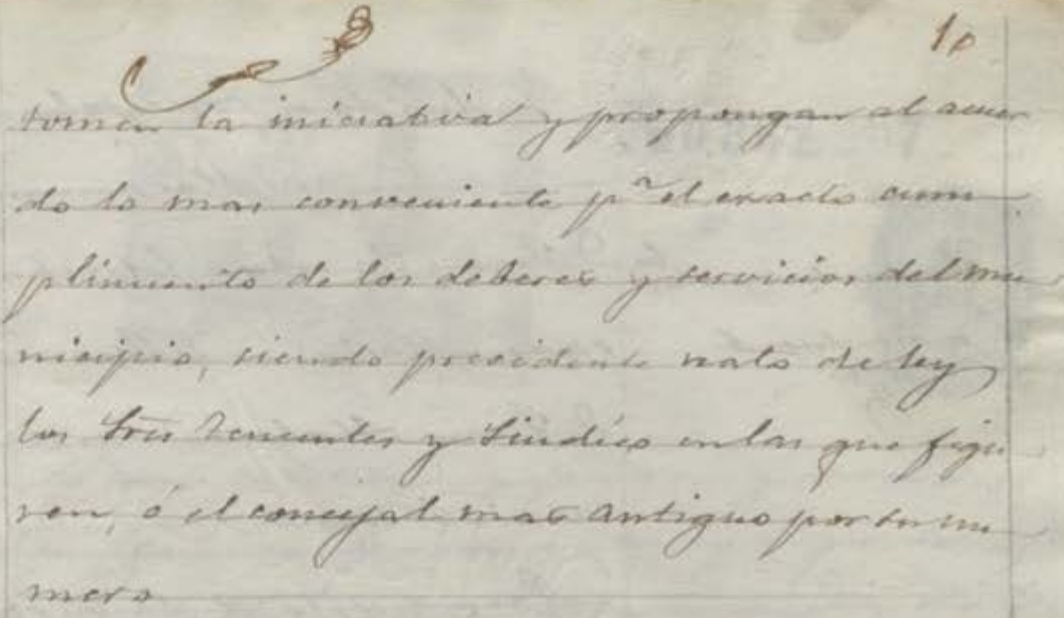 10
tomen la iniciativa y propongan al acuer
do lo mas conveniente pª el exacto cum
plimiento de los deberes y servicios del mu
nicipio, siendo presidente nato de ley
los Sres Tenientes y Sindico en las que figu
ren, ó el concejal mas antiguo por su nu
mero